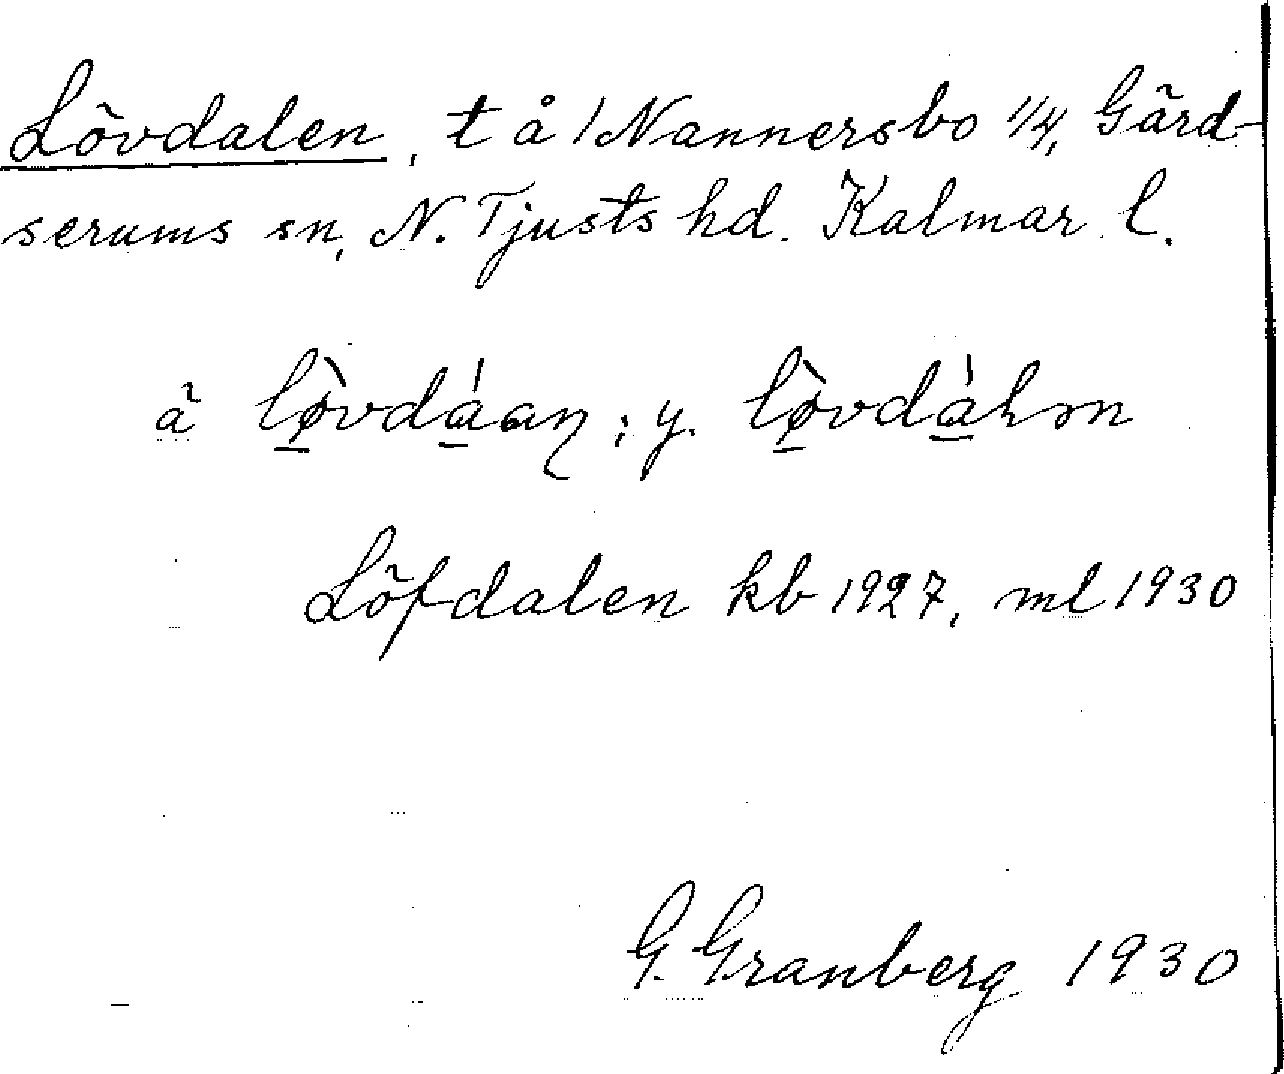 Lövdalen, t å 1 Nannersbo 1/4, Gärd-
serums sn, N. Tjusts hd. Kalmar l.
ä
y.
Löfdalen kb 1927, ml 1930
G. Granberg 1930